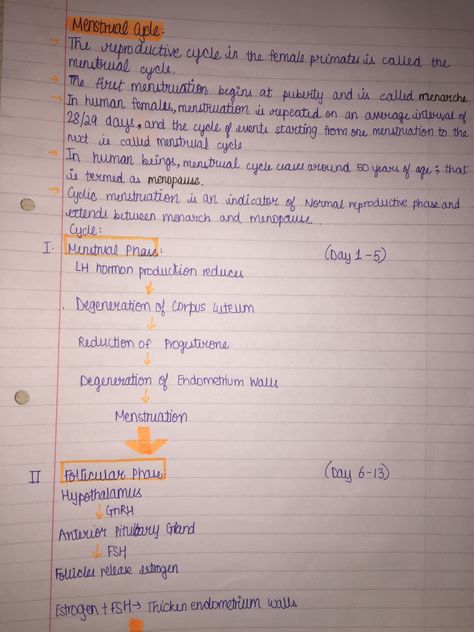 Menstrual Cycle:
→ The reproductive cycle in the female primates is called the
menstrual cycle.
→ The first menstruation begins at puberty and is called menarche.
→ In human females, menstruation is repeated on an average interval of
28/29 days, and the cycle of events starting from one menstruation to the
next is called menstrual cycle
→ In human beings, menstrual cycle ceases around 50 years of age; that
is termed as menopause.
→ Cyclic menstruation is an indicator of Normal reproductive phase and
extends between menarch and menopause.
Cycle:
I. Menstrual Phase: (Day 1-5)
LH hormon production reduces
↓
Degeneration of Corpus Luteum
↓
Reduction of Progesterone
↓
Degeneration of Endometrium Walls
↓
Menstruation
II Follicular Phase: (Day 6-13)
Hypothalamus
↓ GnRH
Anterior Pitutary Gland
↓ FSH
Follicles release estrogen
Estrogen + FSH → Thicken endometrium walls